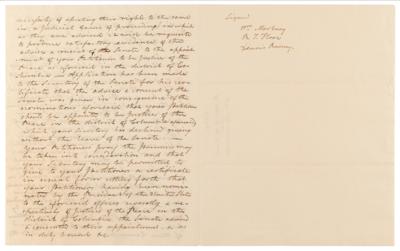 necessity of asserting their rights to the same
in a judicial course of proceeding in which
as they are advised it will be requisite
to produce satisfactory evidence of the
advice & consent of the Senate to the appoint
ment of your Petitioners to be justices of the
Peace as aforesaid in the district of Co-
lumbia an Application has been made
to the Secretary of the Senate for his cer
tificate that the advice & consent of the
Senate was given in consequence of the
nominations aforesaid that your petitioners
should be appointed to be justices of the
Peace in the district of Columbia aforesaid
which your Secretary has declined giving
without the leave of the Senate —
Your Petitioners pray the premises may
be taken into consideration and that
your Secretary may be permitted to
give to your petitioners a certificate
in usual form setting forth that
your Petitioners having been nomi
nated by the President of the United States
to the aforesaid offices severally & re-
spectively of justices of the Peace in the
district of Columbia the Senate advised
& consented to their appointment, & as
in duty bound &c
Signed
Wm Marbury
R. T. Hooe
Dennis Ramsay